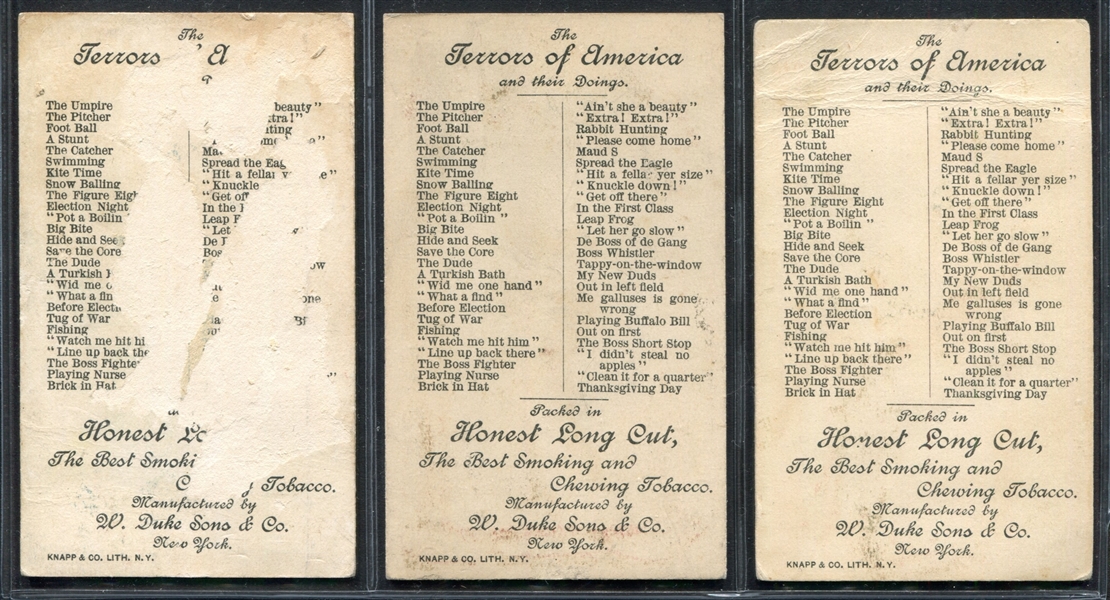 The
Terrors A
The Umpire
The Pitcher
Foot Ball
A Stunt
The Catcher
Swimming
Kite Time
Snow Balling
The Figure Eigh
Election Night
"Pot a Boilin
Big Bite
Hide and See
Save the Core
The Dude
A Turkish
"Wid me
"What a fin
Before Electi
Tug of War
Fishing
"Watch me hit hi
"Line up back the
The Boss Fighter
Playing Nurse
Brick in Hat
beauty"
tra!"
ting
Ma
Spread the Eag
"Hit a fellar e"
"Knuckle
"Get off
In the
Leap F
"Let
De
Bos
ow
one
Bi
Honest Lo
The Best Smoki
C g Tobacco.
Manufactured by
W. Duke Sons & Co.
New York.
KNAPP & CO. LITH. N.Y.
The
Terrors of America
and their Doings.
The Umpire
The Pitcher
Foot Ball
A Stunt
The Catcher
Swimming
Kite Time
Snow Balling
The Figure Eight
Election Night
"Pot a Boilin"
Big Bite
Hide and Seek
Save the Core
The Dude
A Turkish Bath
"Wid me one hand"
"What a find"
Before Election
Tug of War
Fishing
"Watch me hit him"
"Line up back there"
The Boss Fighter
Playing Nurse
Brick in Hat
"Ain't she a beauty"
"Extra! Extra!"
Rabbit Hunting
"Please come home"
Maud S
Spread the Eagle
"Hit a fellar yer size"
"Knuckle down!"
"Get off there"
In the First Class
Leap Frog
"Let her go slow"
De Boss of de Gang
Boss Whistler
Tappy-on-the-window
My New Duds
Out in left field
Me galluses is gone
wrong
Playing Buffalo Bill
Out on first
The Boss Short Stop
"I didn't steal no
apples"
"Clean it for a quarter"
Thanksgiving Day
Packed in
Honest Long Cut,
The Best Smoking and
Chewing Tobacco.
Manufactured by
W. Duke Sons & Co.
New York.
KNAPP & CO. LITH. N.Y.
The
Terrors of America
and their Doings.
The Umpire
The Pitcher
Foot Ball
A Stunt
The Catcher
Swimming
Kite Time
Snow Balling
The Figure Eight
Election Night
"Pot a Boilin"
Big Bite
Hide and Seek
Save the Core
The Dude
A Turkish Bath
"Wid me one hand"
"What a find"
Before Election
Tug of War
Fishing
"Watch me hit him"
"Line up back there"
The Boss Fighter
Playing Nurse
Brick in Hat
"Ain't she a beauty"
"Extra! Extra!"
Rabbit Hunting
"Please come home"
Maud S
Spread the Eagle
"Hit a fellar yer size"
"Knuckle down!"
"Get off there"
In the First Class
Leap Frog
"Let her go slow"
De Boss of de Gang
Boss Whistler
Tappy-on-the-window
My New Duds
Out in left field
Me galluses is gone
wrong
Playing Buffalo Bill
Out on first
The Boss Short Stop
"I didn't steal no
apples"
"Clean it for a quarter"
Thanksgiving Day
Packed in
Honest Long Cut,
The Best Smoking and
Chewing Tobacco.
Manufactured by
W. Duke Sons & Co.
New York.
KNAPP & CO. LITH. N.Y.